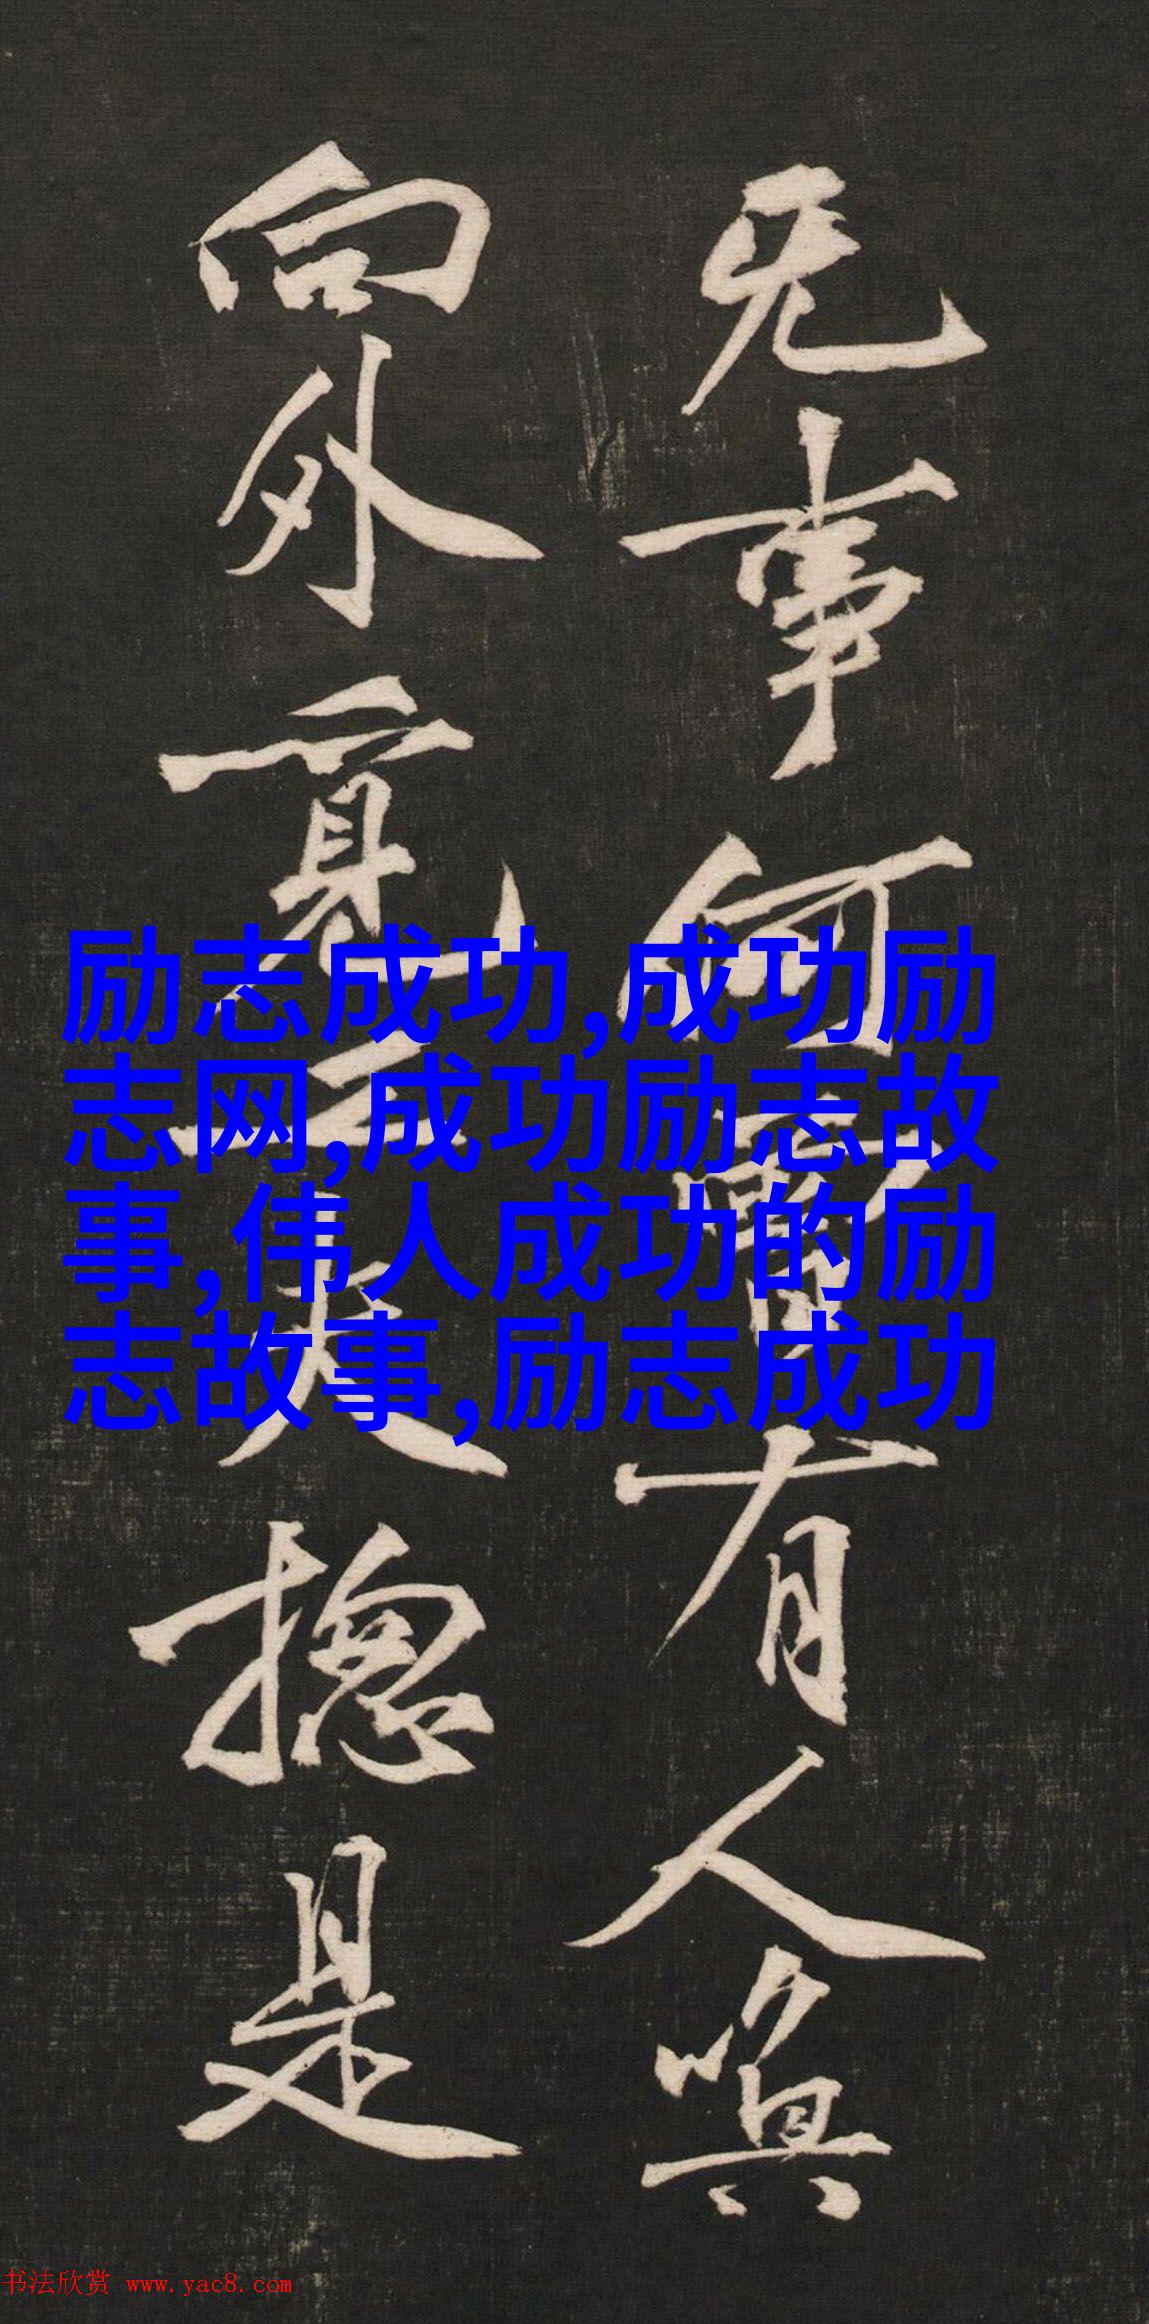 无事何有人
向外覓工夫揔是
励志成功,成功励
志网,成功励志故
事,伟人成功的励
志故事,励志成功
书法欣赏 www.yac8.com